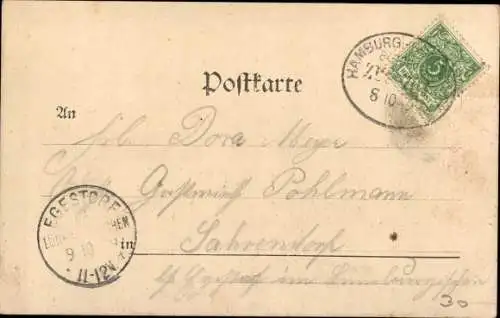 HAMBURG
8 10
5
Postkarte
An
Dora Meyer
Gastwirt Pohlmann
in
Sahrendorf
im Lüneburgischen
EGESTORF
9 10
11-12V
30